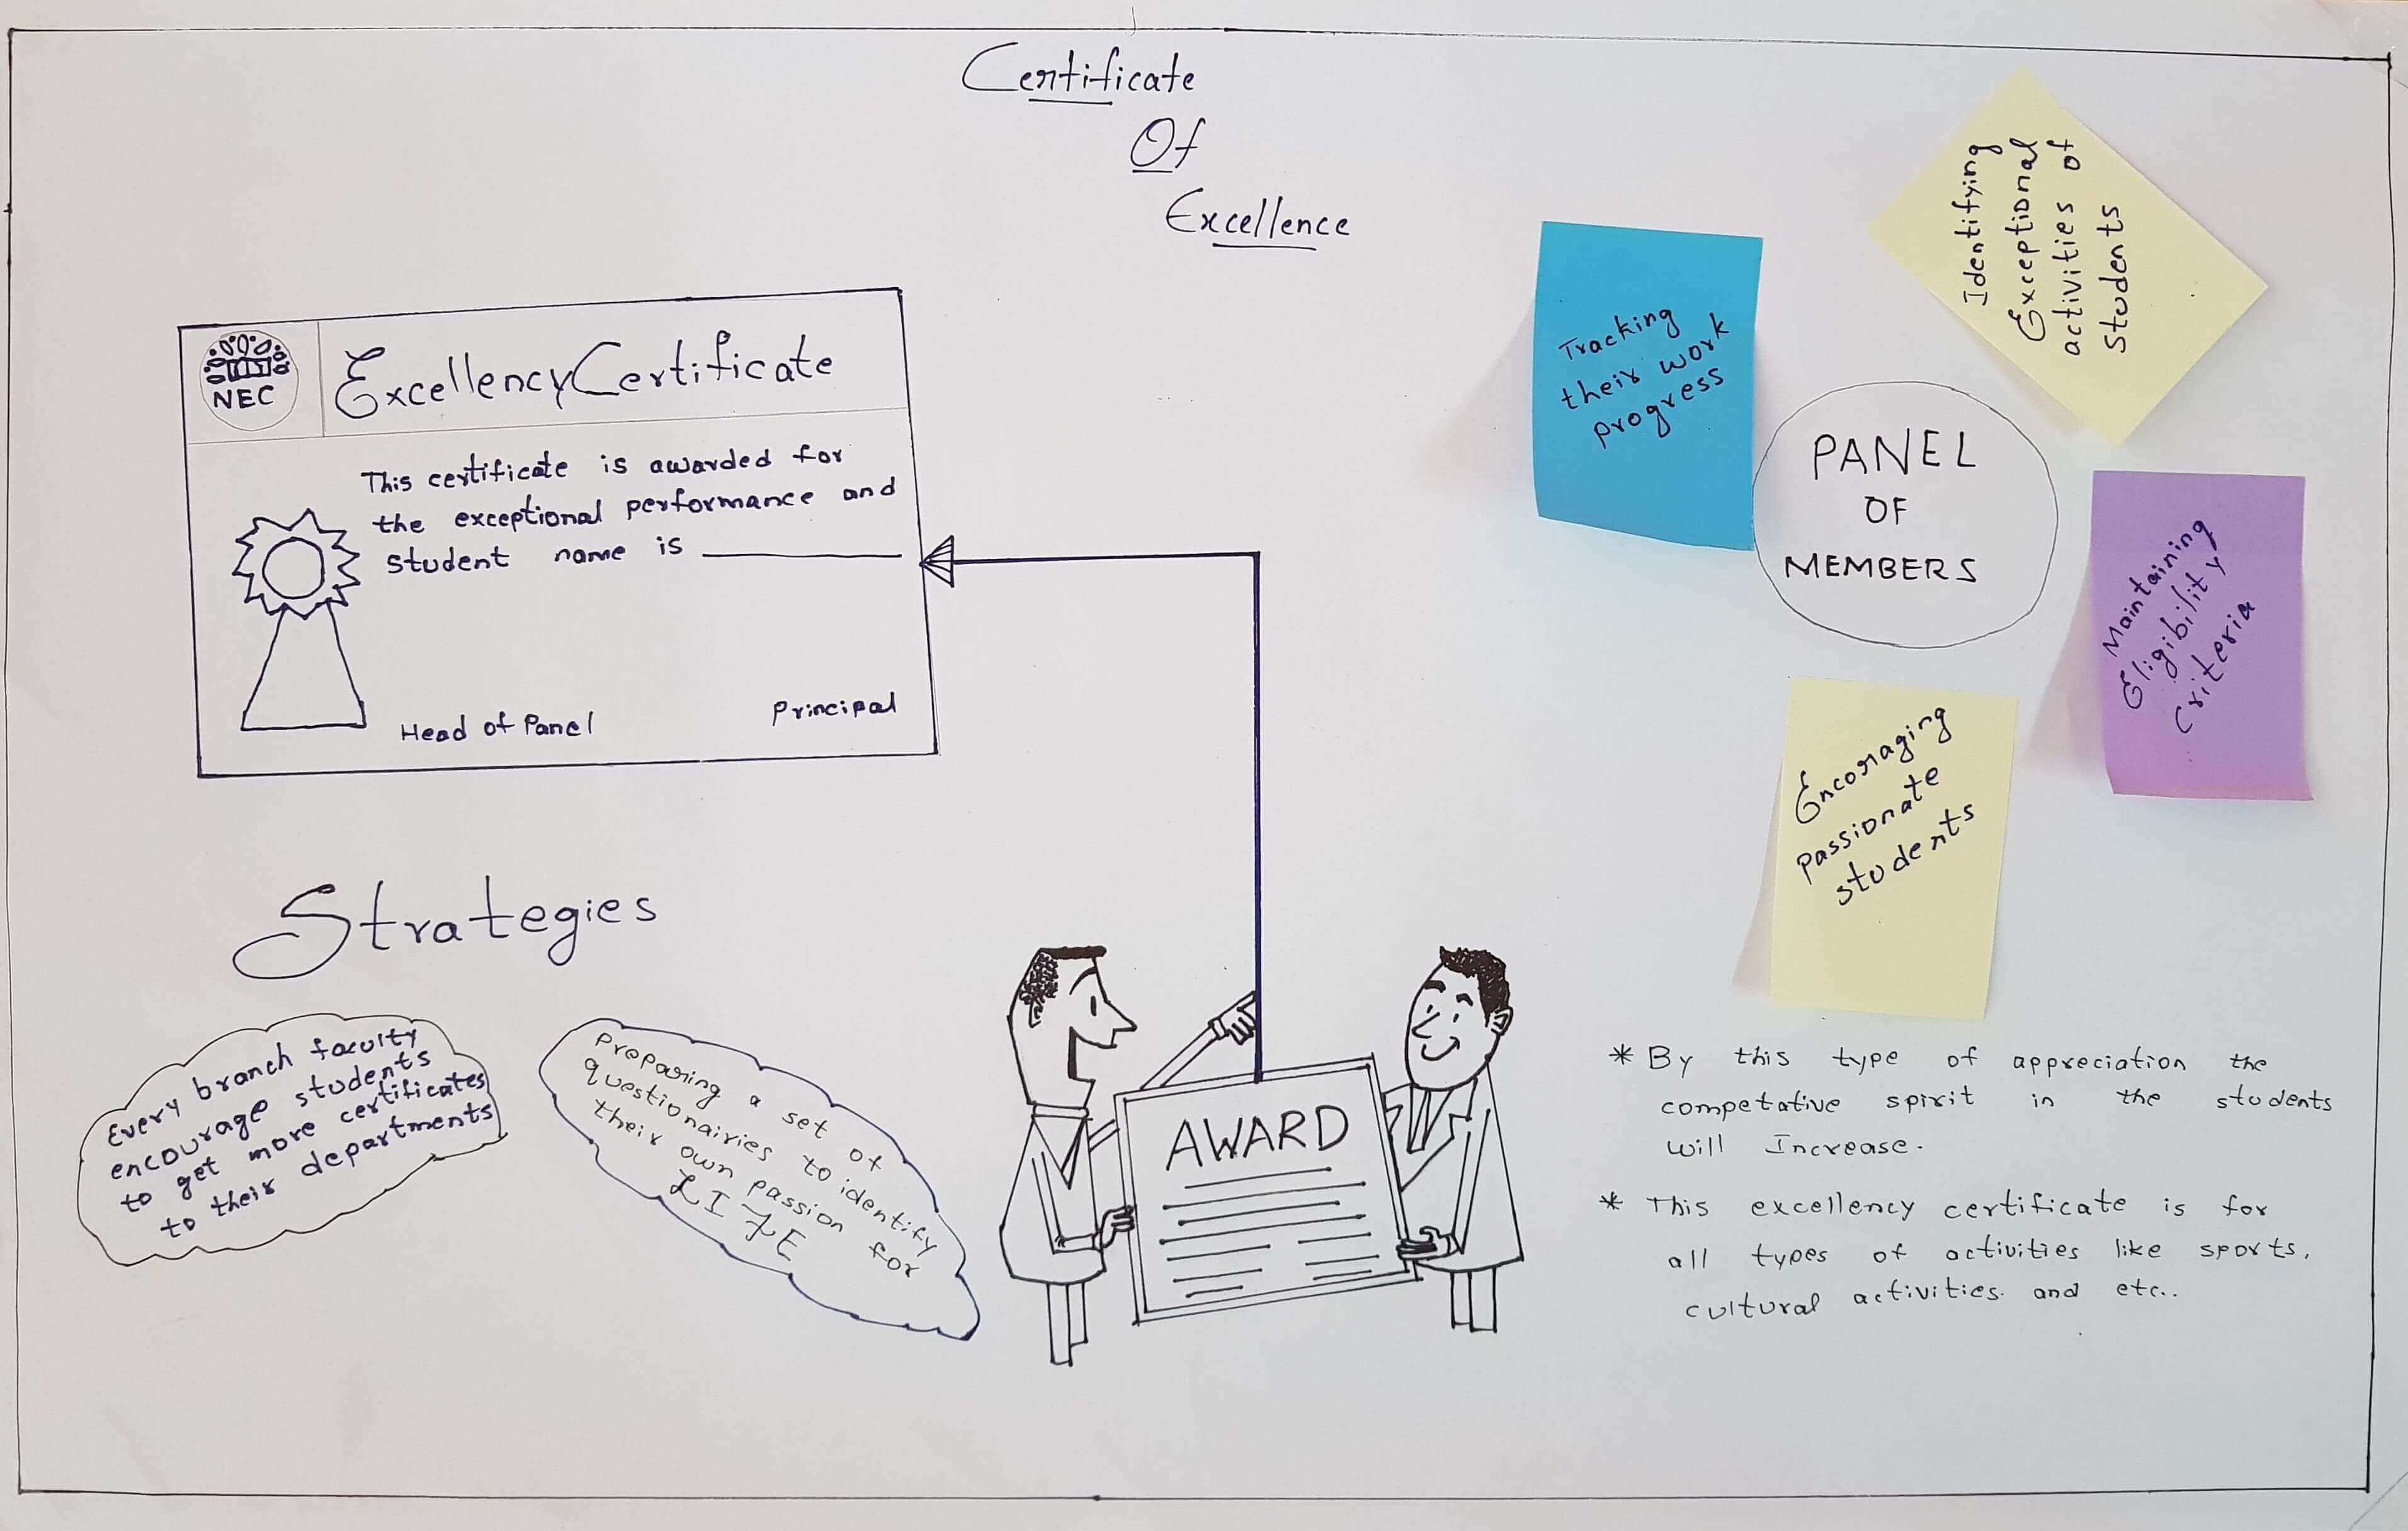 Certificate
Of
Excellence
NEC
Excellency Certificate
This certificate is awarded for
the exceptional performance and
student name is
Head of Panel
Principal
Tracking
their work
progress
Identifying
Exceptional
activities of
students
PANEL
OF
MEMBERS
Maintaining
Eligibility
Criteria
Encoraging
passionate
students
Strategies
Every branch faculty
encourage students
to get more certificates
to their departments
Preparing a set of
questionairies to identify
their own passion for
LIFE
AWARD
* By this type of appreciation the
competative spirit in the students
will Increase.
* This excellency certificate is for
all types of activities like sports,
cultural activities. and etc..